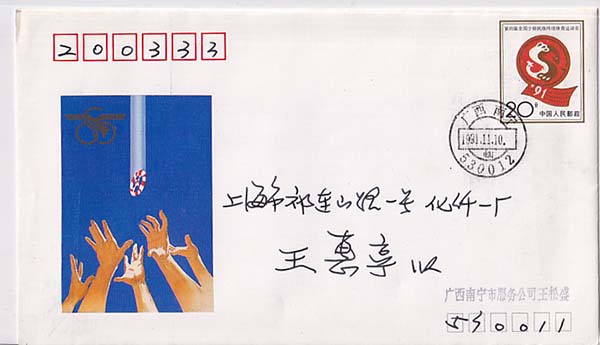 200333
第四届全国少数民族传统体育运动会
'91
20分
中国人民邮政
广西 南宁
1991.11.10.
530012
上海市祁连山路一号 化纤一厂
王惠亭 收
广西南宁市服务公司王松盛
530011